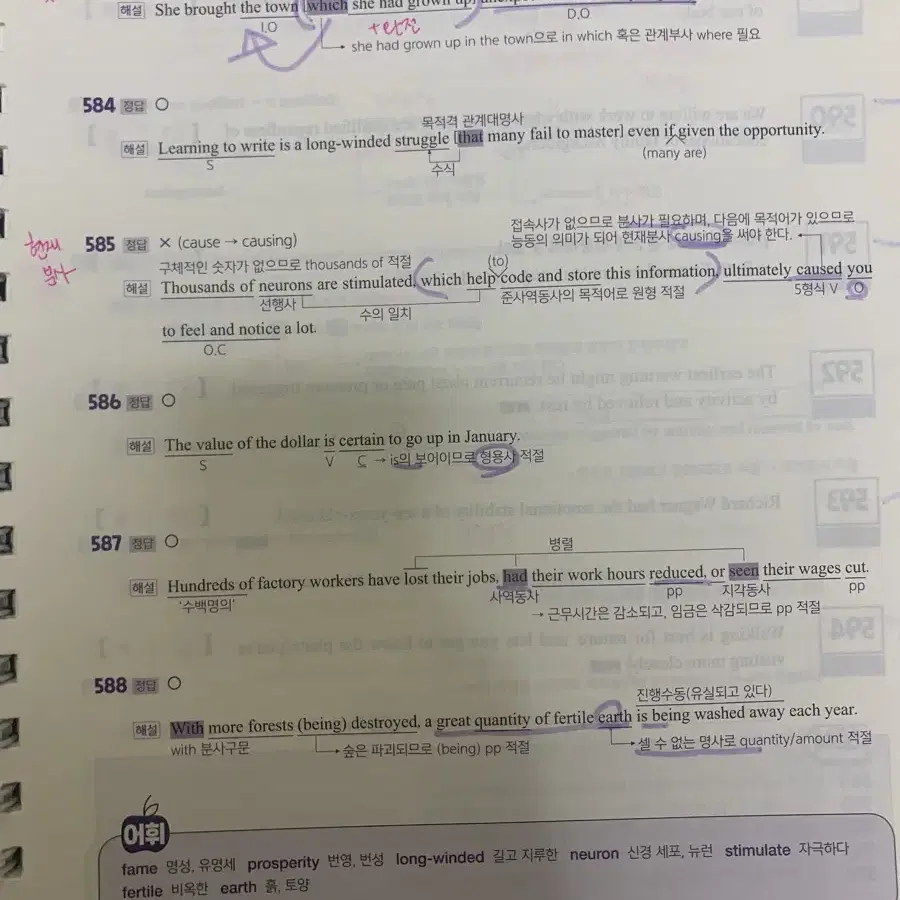 해설 She brought the town [which she had grown up,
I.O D.O
+완전
she had grown up in the town으로 in which 혹은 관계부사 where 필요
584 정답 ○
목적격 관계대명사
해설 Learning to write is a long-winded struggle [that many fail to master] even if given the opportunity.
S 수식 (many are)
접속사가 없으므로 분사가 필요하며, 다음에 목적어가 있으므로
585 정답 × (cause → causing) 능동의 의미가 되어 현재분사 causing을 써야 한다.
현재
분사
구체적인 숫자가 없으므로 thousands of 적절 (to)
해설 Thousands of neurons are stimulated, which help code and store this information, ultimately caused you
선행사 수의 일치 준사역동사의 목적어로 원형 적절 5형식 V O
to feel and notice a lot.
O.C
586 정답 ○
해설 The value of the dollar is certain to go up in January.
S V C → is의 보어이므로 형용사 적절
587 정답 ○
병렬
해설 Hundreds of factory workers have lost their jobs, had their work hours reduced, or seen their wages cut.
'수백명의' 사역동사 pp 지각동사 pp
→ 근무시간은 감소되고, 임금은 삭감되므로 pp 적절
588 정답 ○
진행수동(유실되고 있다)
해설 With more forests (being) destroyed, a great quantity of fertile earth is being washed away each year.
with 분사구문 숲은 파괴되므로 (being) pp 적절 셀 수 없는 명사로 quantity/amount 적절
6
어휘
fame 명성, 유명세 prosperity 번영, 번성 long-winded 길고 지루한 neuron 신경 세포, 뉴런 stimulate 자극하다
fertile 비옥한 earth 흙, 토양